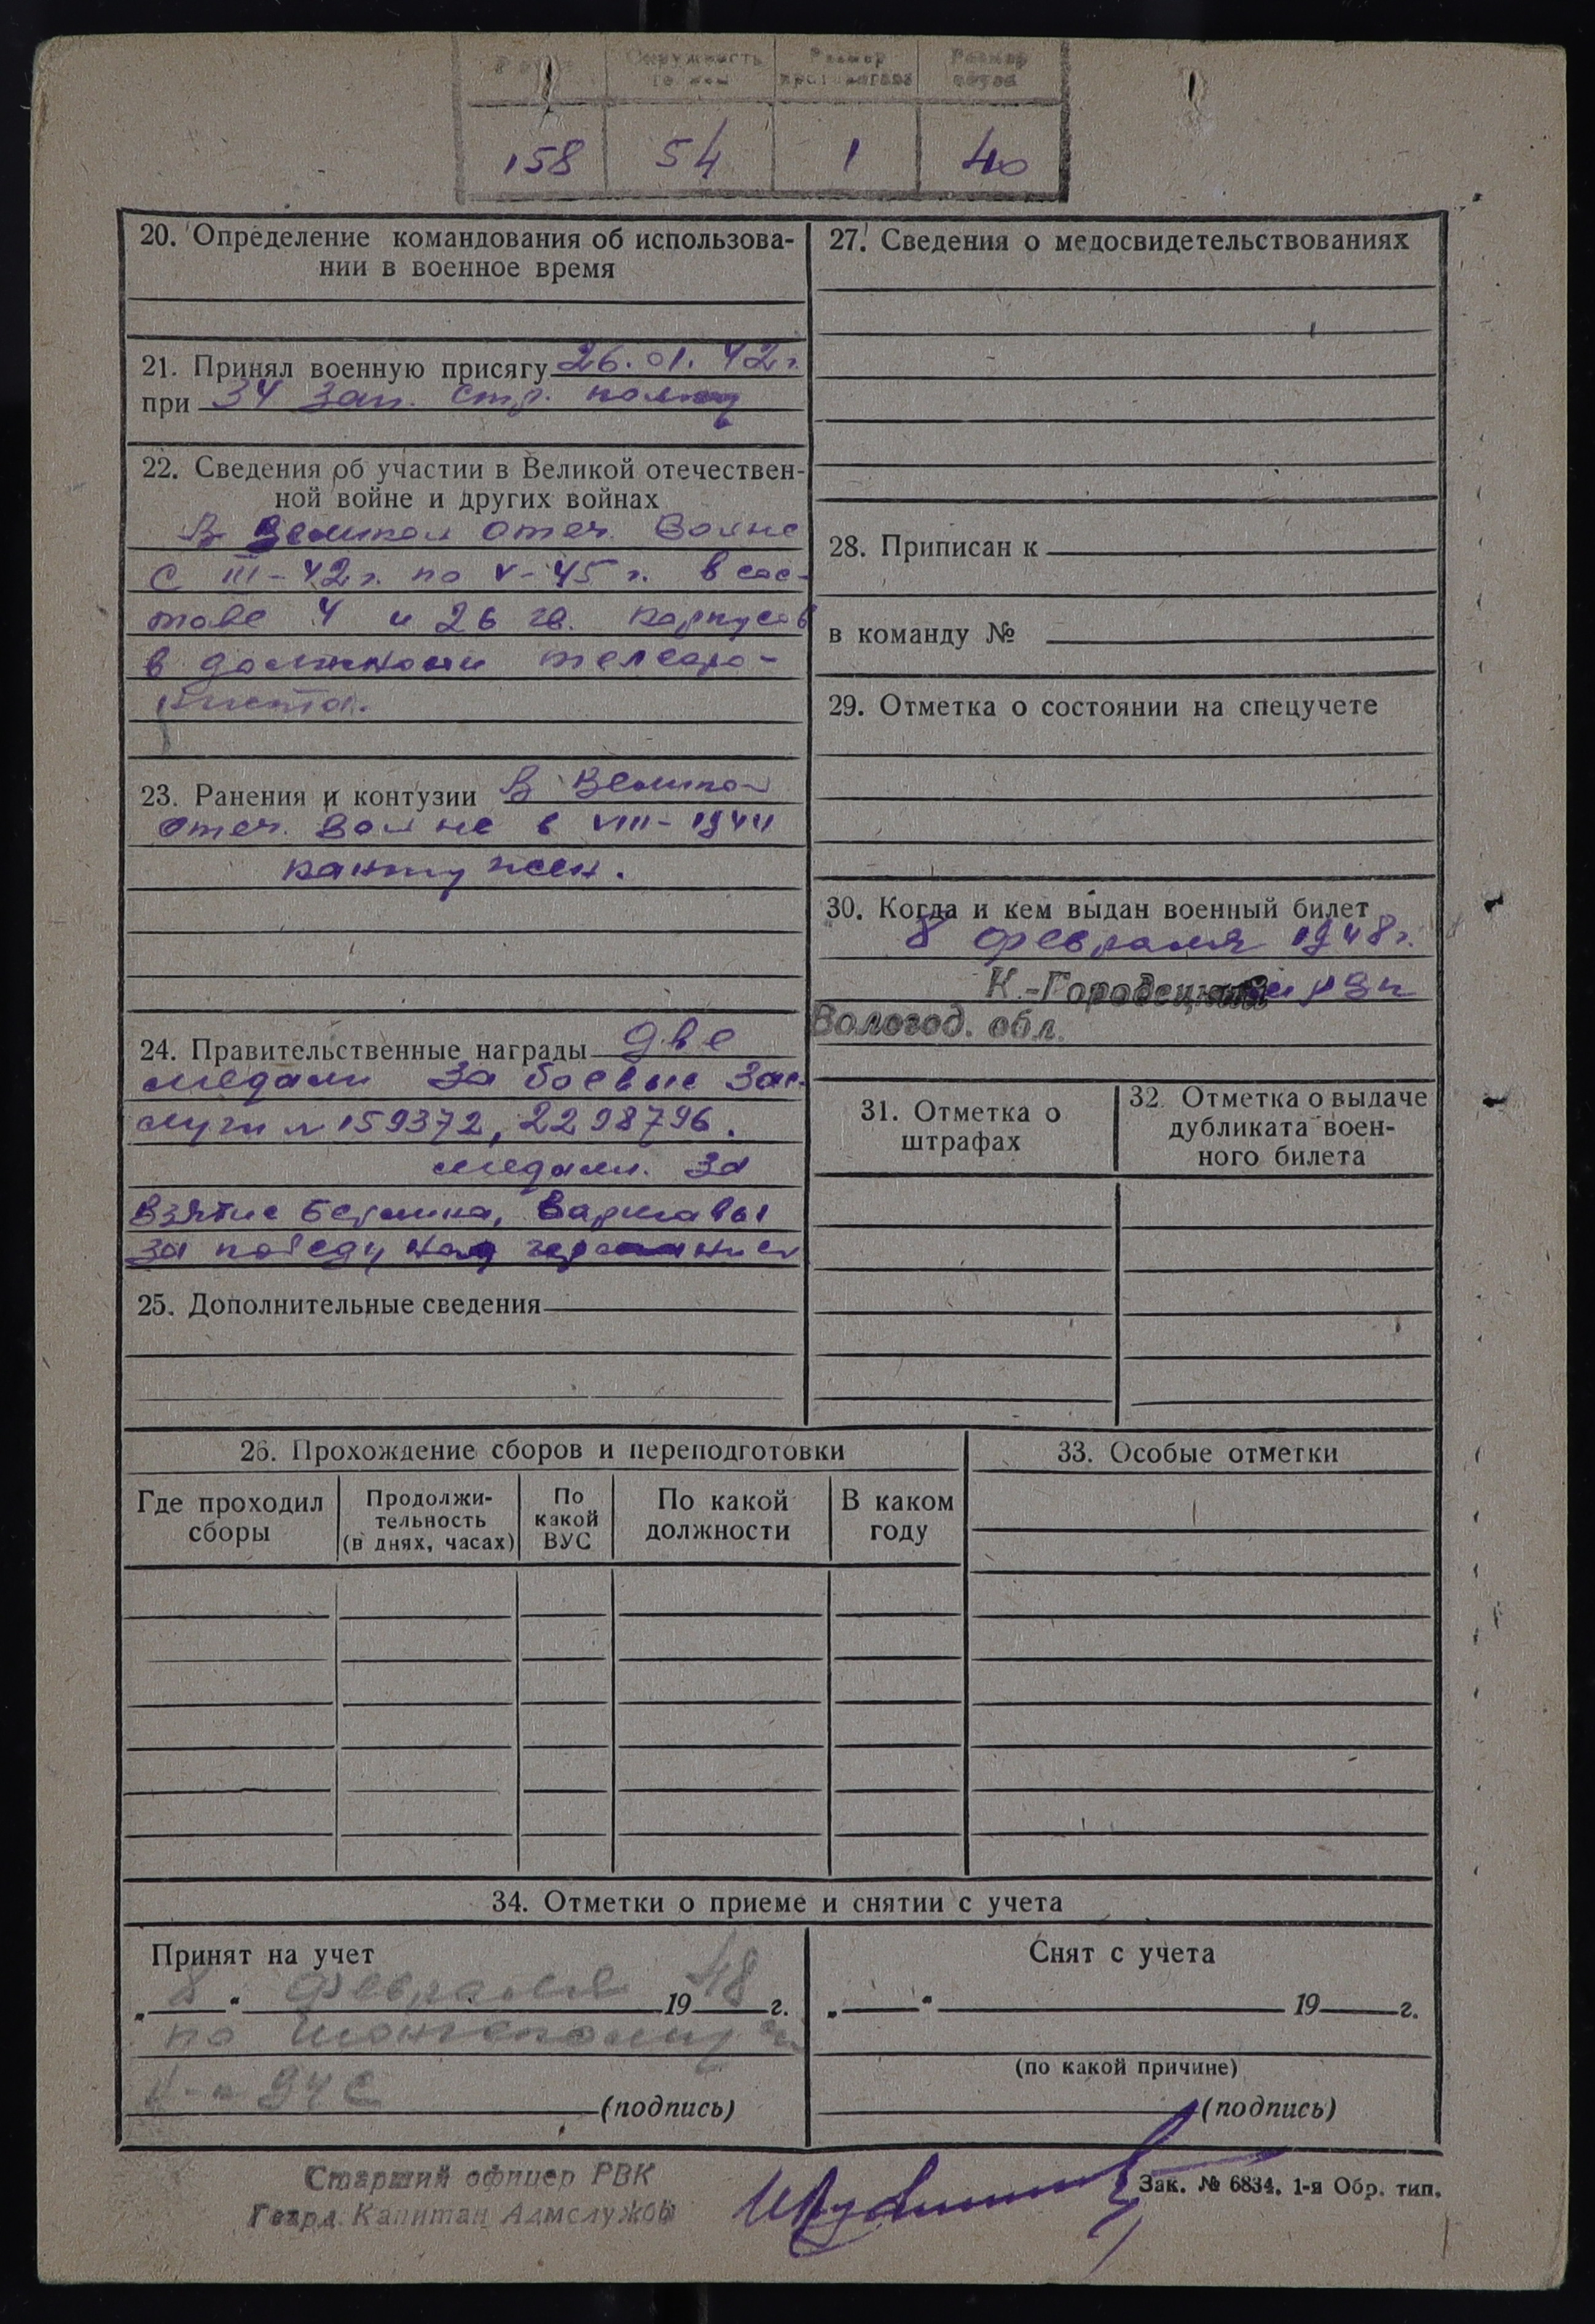 Рост Окружность Размер Размер
головы противогаза обуви
158 54 1 40
20. Определение командования об использова-
нии в военное время
21. Принял военную присягу 26.01.42г.
при 34 зап. стр. полку
22. Сведения об участии в Великой отечествен-
ной войне и других войнах
В Великой Отеч. Войне
с III-42г. по V-45г. в сос-
таве 4 и 26 гв. корпусов
в должности телефо-
ниста.
23. Ранения и контузии В Великой
Отеч. Войне в VIII-1944
контужен.
24. Правительственные награды две
медали За боевые зас-
луги № 159372, 2298796.
медали. За
взятие Берлина, Варшавы
за победу над германией
25. Дополнительные сведения
27. Сведения о медосвидетельствованиях
28. Приписан к
в команду №
29. Отметка о состоянии на спецучете
30. Когда и кем выдан военный билет
8 февраля 1948г.
К.-Городецкий РВК
Вологод. обл.
31. Отметка о
штрафах
32. Отметка о выдаче
дубликата воен-
ного билета
26. Прохождение сборов и переподготовки
Где проходил
сборы
Продолжи-
тельность
(в днях, часах)
По
какой
ВУС
По какой
должности
В каком
году
33. Особые отметки
34. Отметки о приеме и снятии с учета
Принят на учет
„8“ февраля 1948 г.
по
(подпись)
Снят с учета
„ “ 19 г.
(по какой причине)
(подпись)
Старший офицер РВК
Гвард. Капитан Адмслужбы
Зак. № 6834. 1-я Обр. тип.